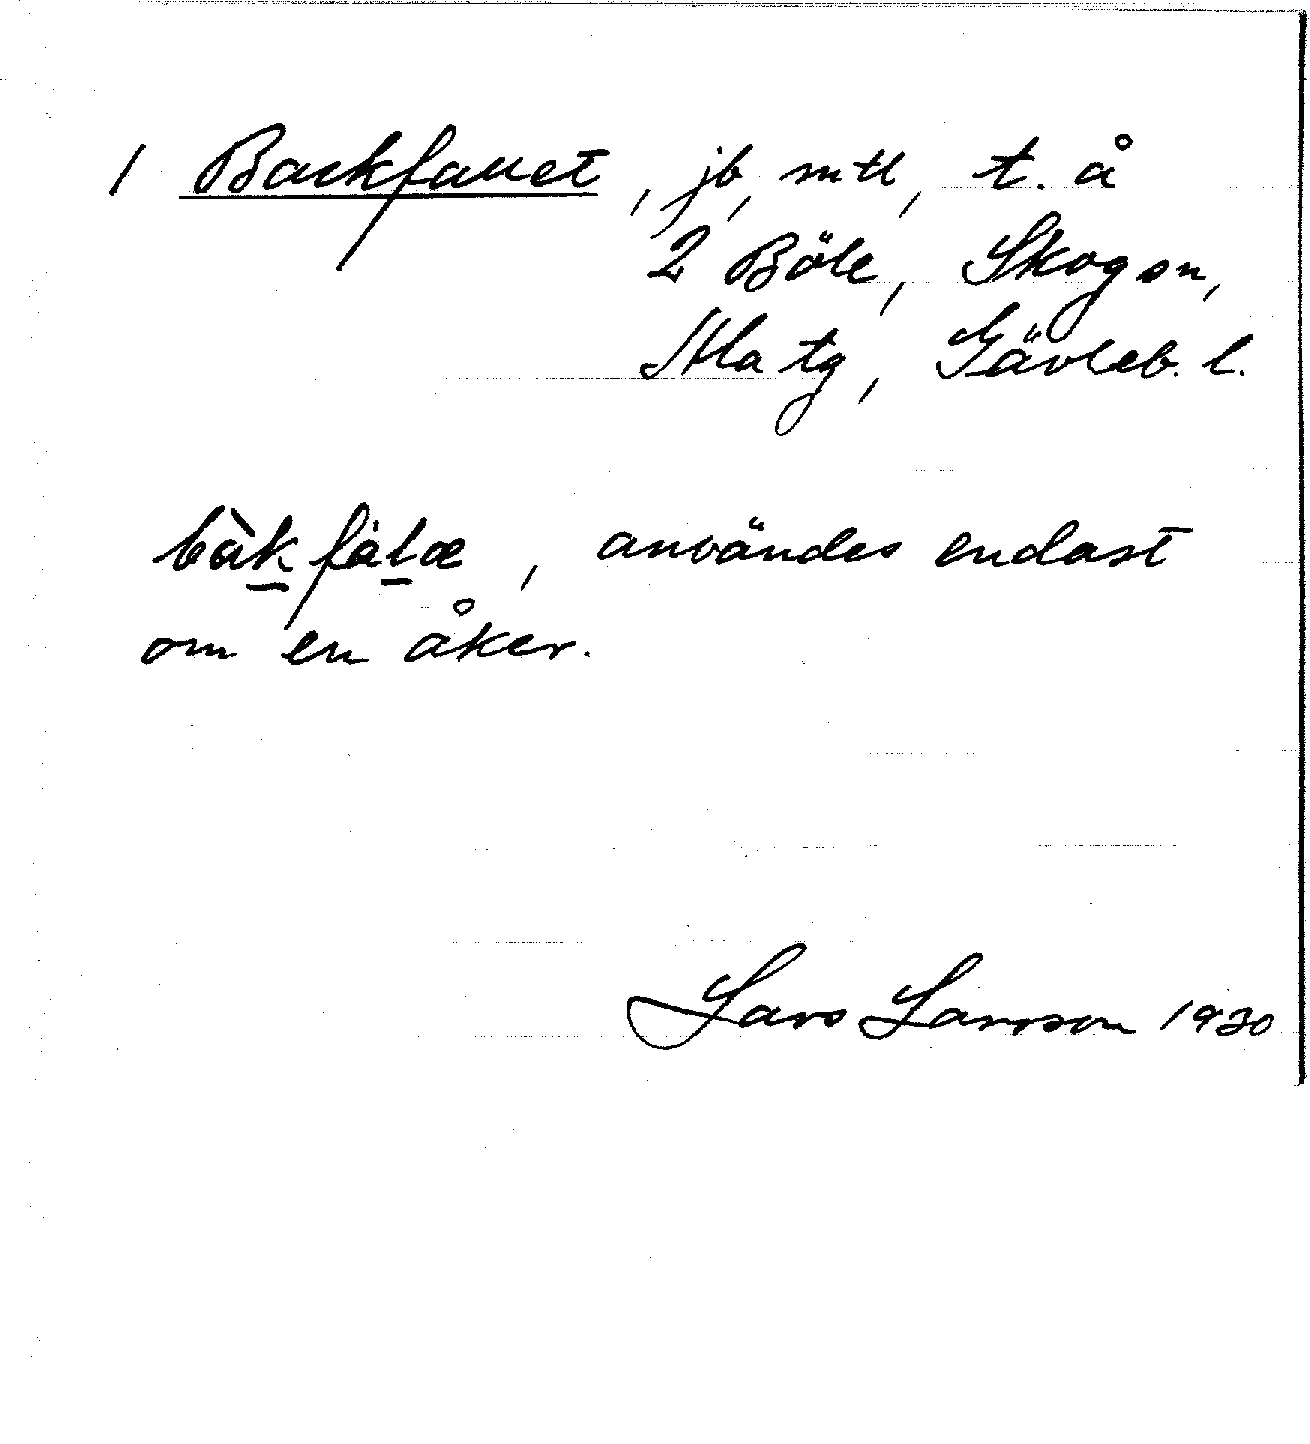 1 Backfallet, jb, mtl, t. å
2 Böle, Skog sn,
Ala tg, Gävleb. l.
bàkfal̠æ, användes endast
om en åker.
Lars Larsson 1930